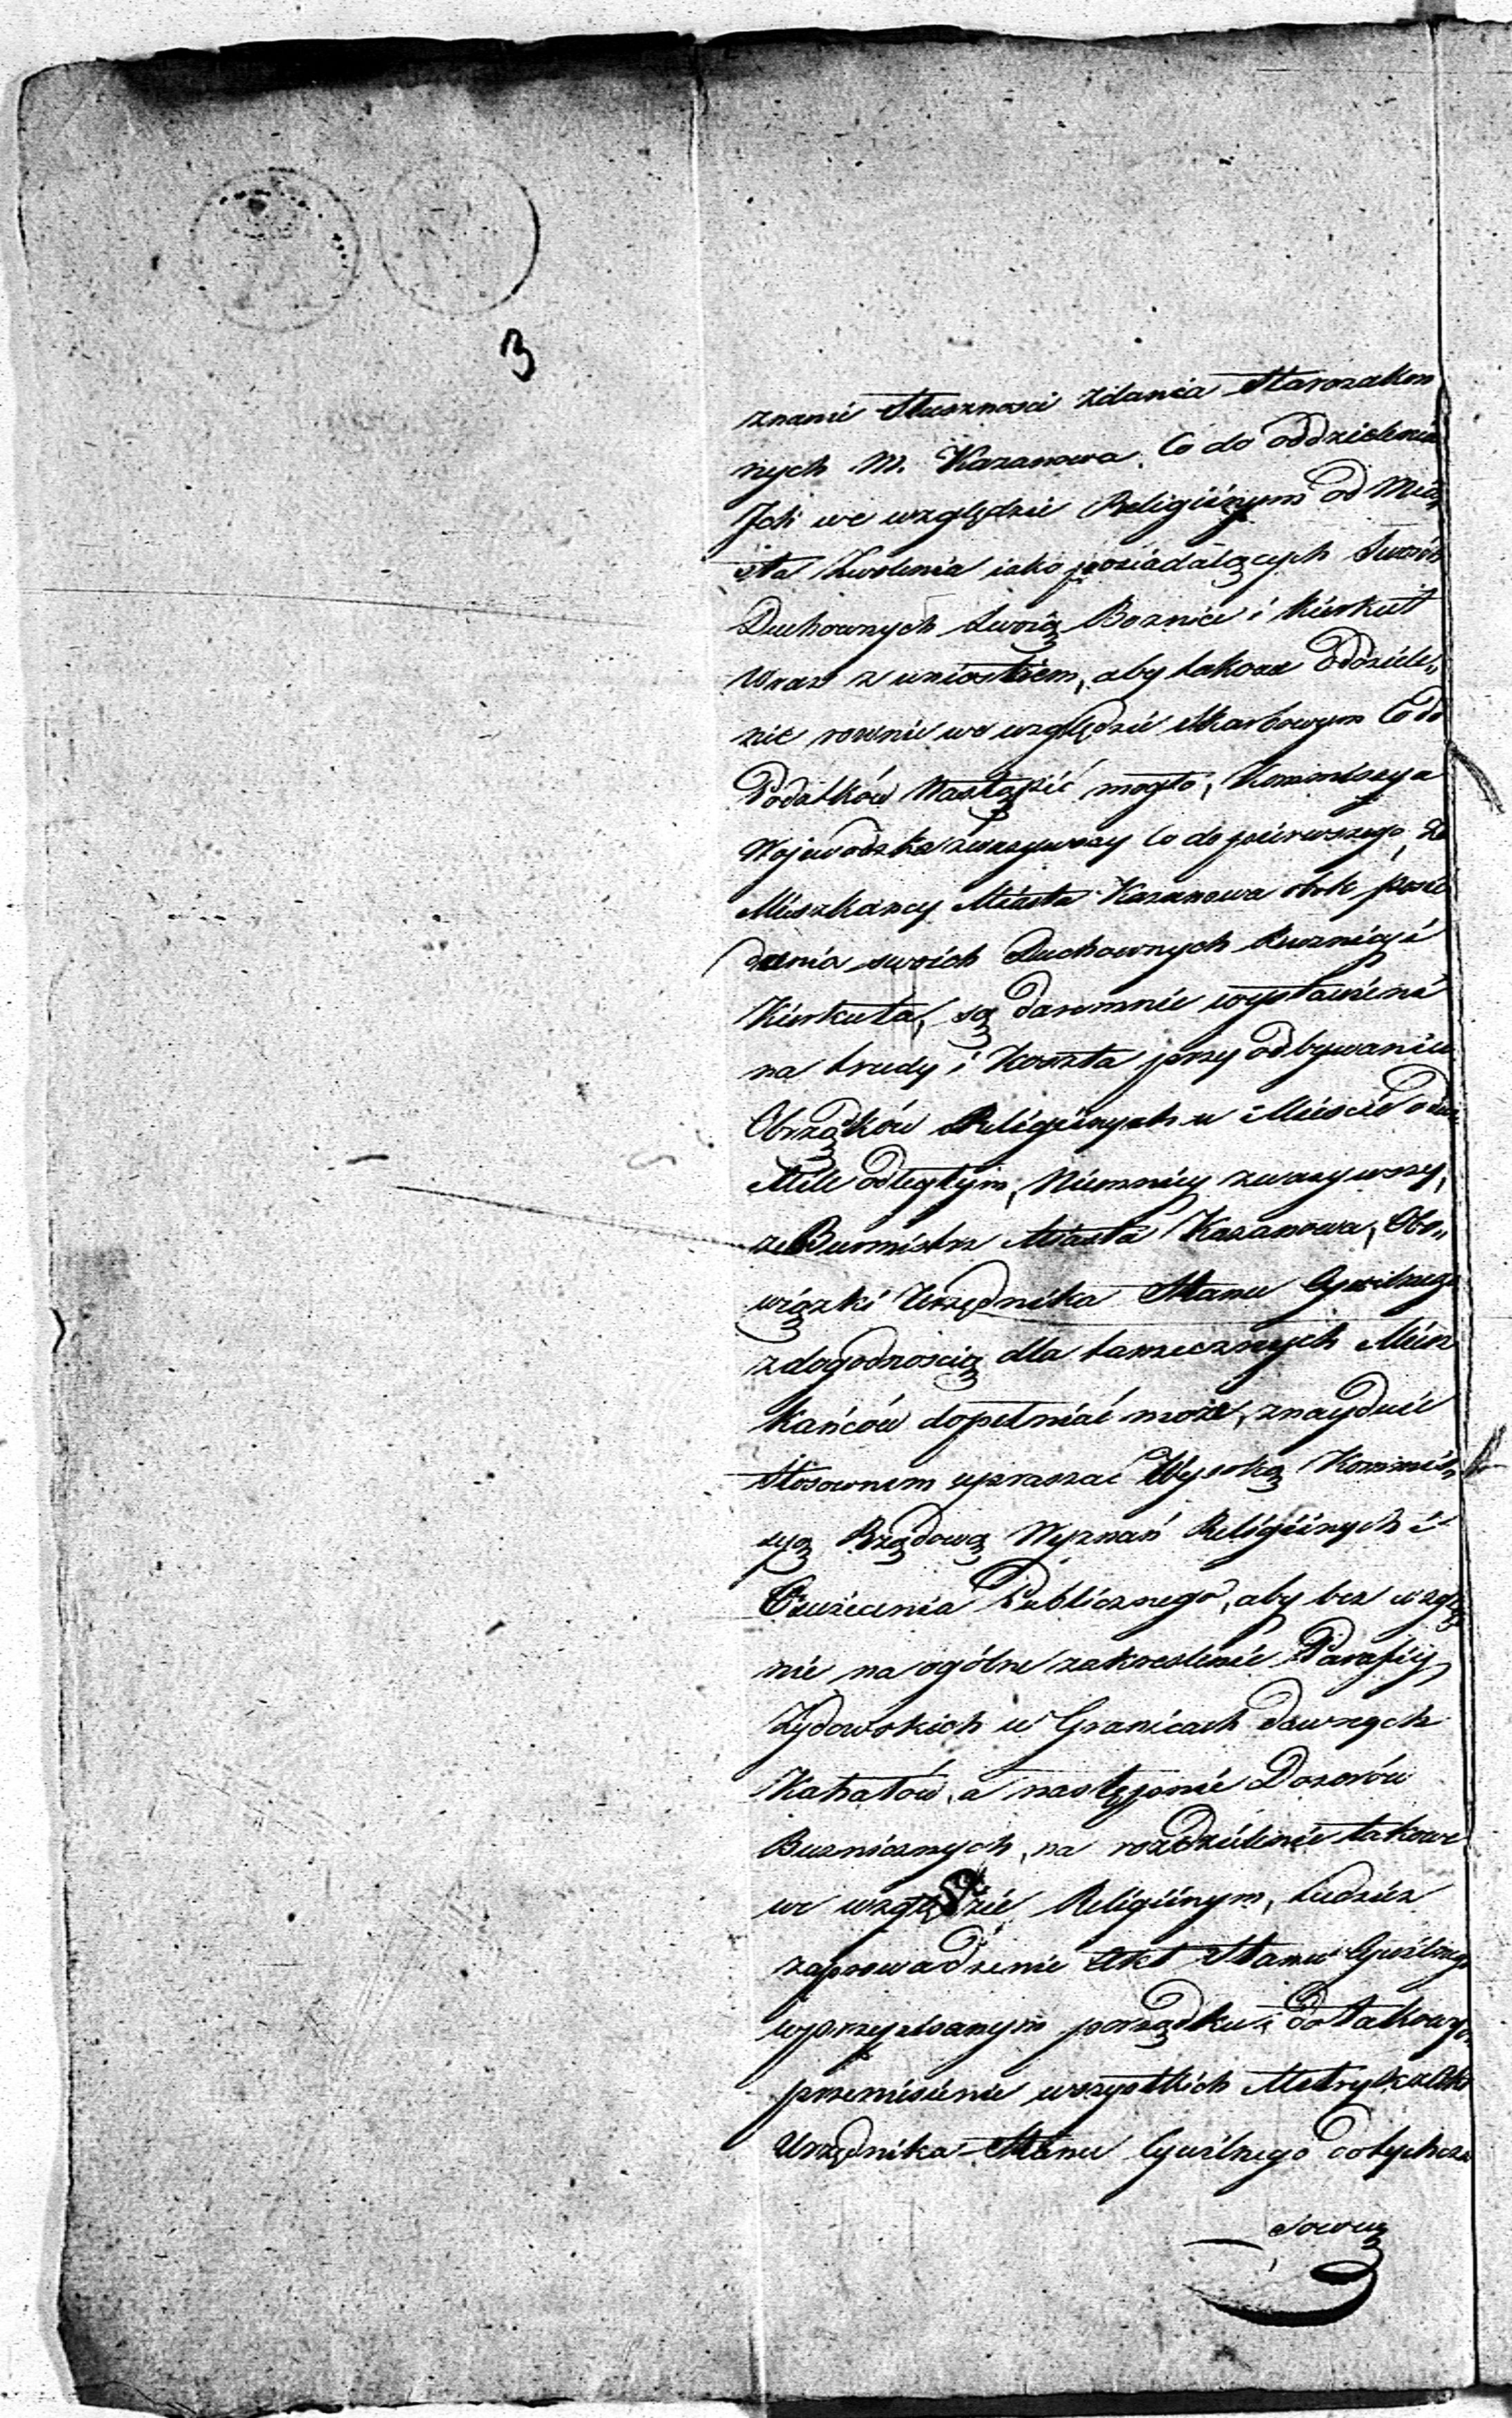 3
znanie słuszności żdania Starozakon
nych M. Kazanowa. Co do oddzielenia
Ich we względzie Religiinym od Mia
sta Zwolenia iako posiadaiących Swoich
Duchownych Swoią Boznice i Kierkut
Wraz z wnioskiem, aby takowe Oddziele„
nie rownie we względzie Skarbowym Co do
Podatków Nastąpić mogło, Kommissya
Wojewodzka zważywszy Co do pierwszego, że
Mieszkancy Miasta Kazanowa obok posia
dania swoich Duchownych Buznicy i
Kierkuta, są daremnie wystawieni
na trudy i Koszta przy odbywaniu
Obrządków Religiinych w Mieście o dwie
Mile odległym, Niemniey zważywszy,
że Burmistrz Miasta Kazanowa, Obo„
wiązki Urzędnika Stanu Cywilnego
z dogodnością dla tamecznych Miesz
kańców dopełniać może, znayduie
Stosownem upraszać Wysoką Kommis„
syą Rządową Wyznań Religiinych i
Oświecenia Publicznego, aby bez wzglę
nie na ogólne zakreslenie Parafiy
Żydowskich w Granicach dawnych
Kahałów, a następnie Dozorów
Buznicznych, na rozdzielenie takowe
we względzie Religiinym, tudzież
zaprowadzenie Akt Stanu Cywilnego
w przepisanym porządku i do takowych
przeniesienie wszystkich Metryk z Akt
Urzędnika Stanu Cywilnego dotychcza
sowey